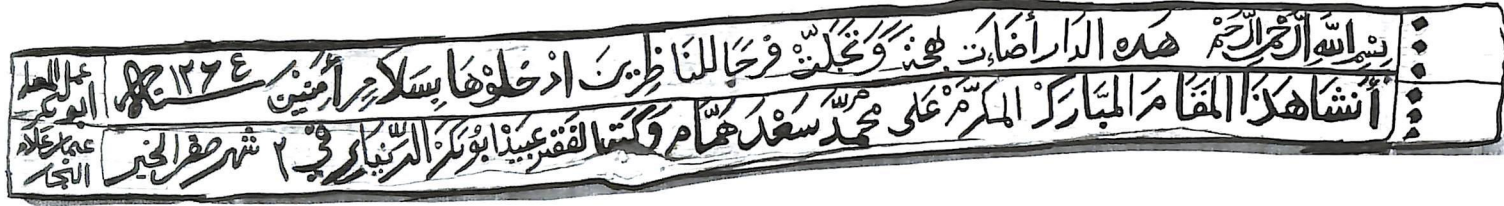 بسم الله الرحمن الرحيم هده الدار أضاءت بهجة وتجلت فرحا للناظرين ادخلوها بسلام أمنين سنة ١٢٦٤
أنشا هذا المقام المبارك المكرم على محمد سعد همام وكتبه الفقير عبيد ابو بكر في ٢ شهر صفر الخير
عمل المعلم
ابو بكر
النجار